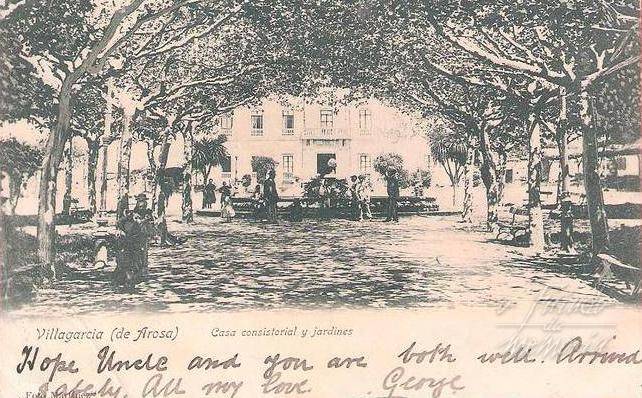 Villagarcia (de Arosa) Casa consistorial y jardines
Hope Uncle and you are both well Arrived
safely, All my love. George
Foto